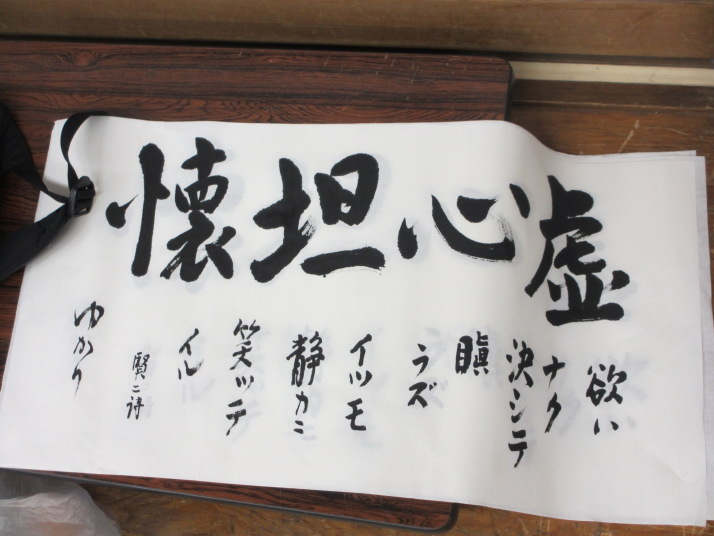 虚心坦懐
欲ハ
ナク
決シテ
瞋
ラズ
イツモ
静カニ
笑ッテ
イル
賢二詩
ゆかり